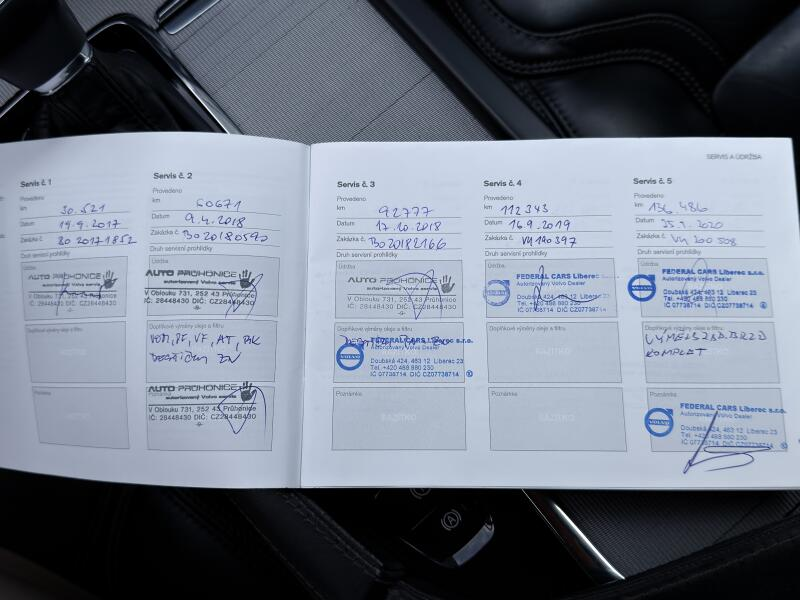 SERVIS A ÚDRŽBA
Servis č. 1
Provedeno
km 30.521
Datum 19.9.2017
Zakázka č. BO20171852
Druh servisní prohlídky
Údržba
AUTO PRŮHONICE
autorizovaný Volvo servis
V Oblouku 731, 252 43 Průhonice
IČ: 28448430 DIČ: CZ28448430
Doplňkové výměny oleje a filtru
Poznámka
Servis č. 2
Provedeno
km 60671
Datum 9.4.2018
Zakázka č. BO20180590
Druh servisní prohlídky
Údržba
AUTO PRŮHONICE
autorizovaný Volvo servis
V Oblouku 731, 252 43 Průhonice
IČ: 28448430 DIČ: CZ28448430
-9-
Doplňkové výměny oleje a filtru
PF, VF, AT,
Poznámka
AUTO PRŮHONICE
autorizovaný Volvo servis
V Oblouku 731, 252 43 Průhonice
IČ: 28448430 DIČ: CZ28448430
-9-
Servis č. 3
Provedeno
km 92777
Datum 17.10.2018
Zakázka č. BO20182166
Druh servisní prohlídky
Údržba
AUTO PRŮHONICE
autorizovaný Volvo servis
V Oblouku 731, 252 43 Průhonice
IČ: 28448430 DIČ: CZ28448430
Doplňkové výměny oleje a filtru
VOLVO
FEDERAL CARS Liberec s.r.o.
Autorizovaný Volvo Dealer
Doubská 424, 463 12 Liberec 23
Tel. +420 488 880 230
IČ 07738714 DIČ CZ07738714
Poznámka
RAZÍTKO
Servis č. 4
Provedeno
km 112 343
Datum 16.9.2019
Zakázka č. VM190397
Druh servisní prohlídky
Údržba
VOLVO
FEDERAL CARS Liberec s.r.o.
Autorizovaný Volvo Dealer
Doubská 424, 463 12 Liberec 23
Tel. +420 488 880 230
IČ 07738714 DIČ CZ07738714
Doplňkové výměny oleje a filtru
RAZÍTKO
Poznámka
RAZÍTKO
Servis č. 5
Provedeno
km 136.486
Datum
Zakázka č. VM 200 508
Druh servisní prohlídky
Údržba
VOLVO
FEDERAL CARS Liberec s.r.o.
Autorizovaný Volvo Dealer
Doubská 424, 463 12 Liberec 23
Tel. +420 488 880 230
IČ 07738714 DIČ CZ07738714
Doplňkové výměny oleje a filtru
KOMPLET
Poznámka
VOLVO
FEDERAL CARS Liberec s.r.o.
Autorizovaný Volvo Dealer
Doubská 424, 463 12 Liberec 23
Tel. +420 488 880 230
IČ 07738714 DIČ CZ07738714
(A)